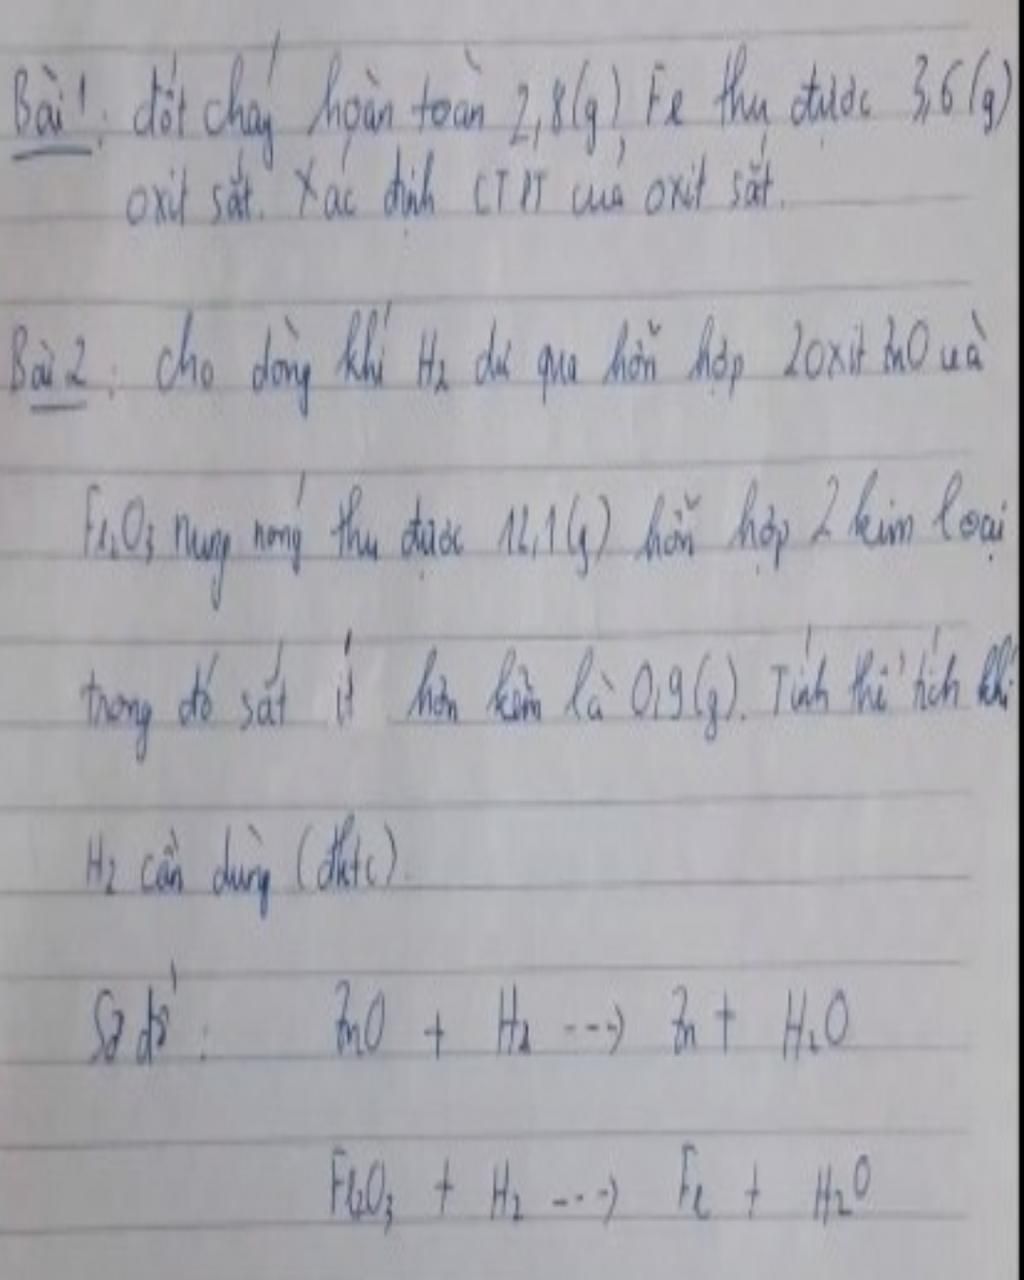 Bài 1: đốt cháy hoàn toàn 2,8(g) Fe thu được 3,6(g)
oxit sắt. Xác định CTPT của oxit sắt.
Bài 2: Cho dòng khí H₂ dư qua hỗn hợp 2 oxit ZnO và
Fe₂O₃ nung nóng thu được 12,1(g) hỗn hợp 2 kim loại
trong đó sắt ít hơn kẽm là 0,9(g). Tính thể tích khí
H₂ cần dùng (đktc).
Sơ đồ: ZnO + H₂ ---> Zn + H₂O
Fe₂O₃ + H₂ ---> Fe + H₂O